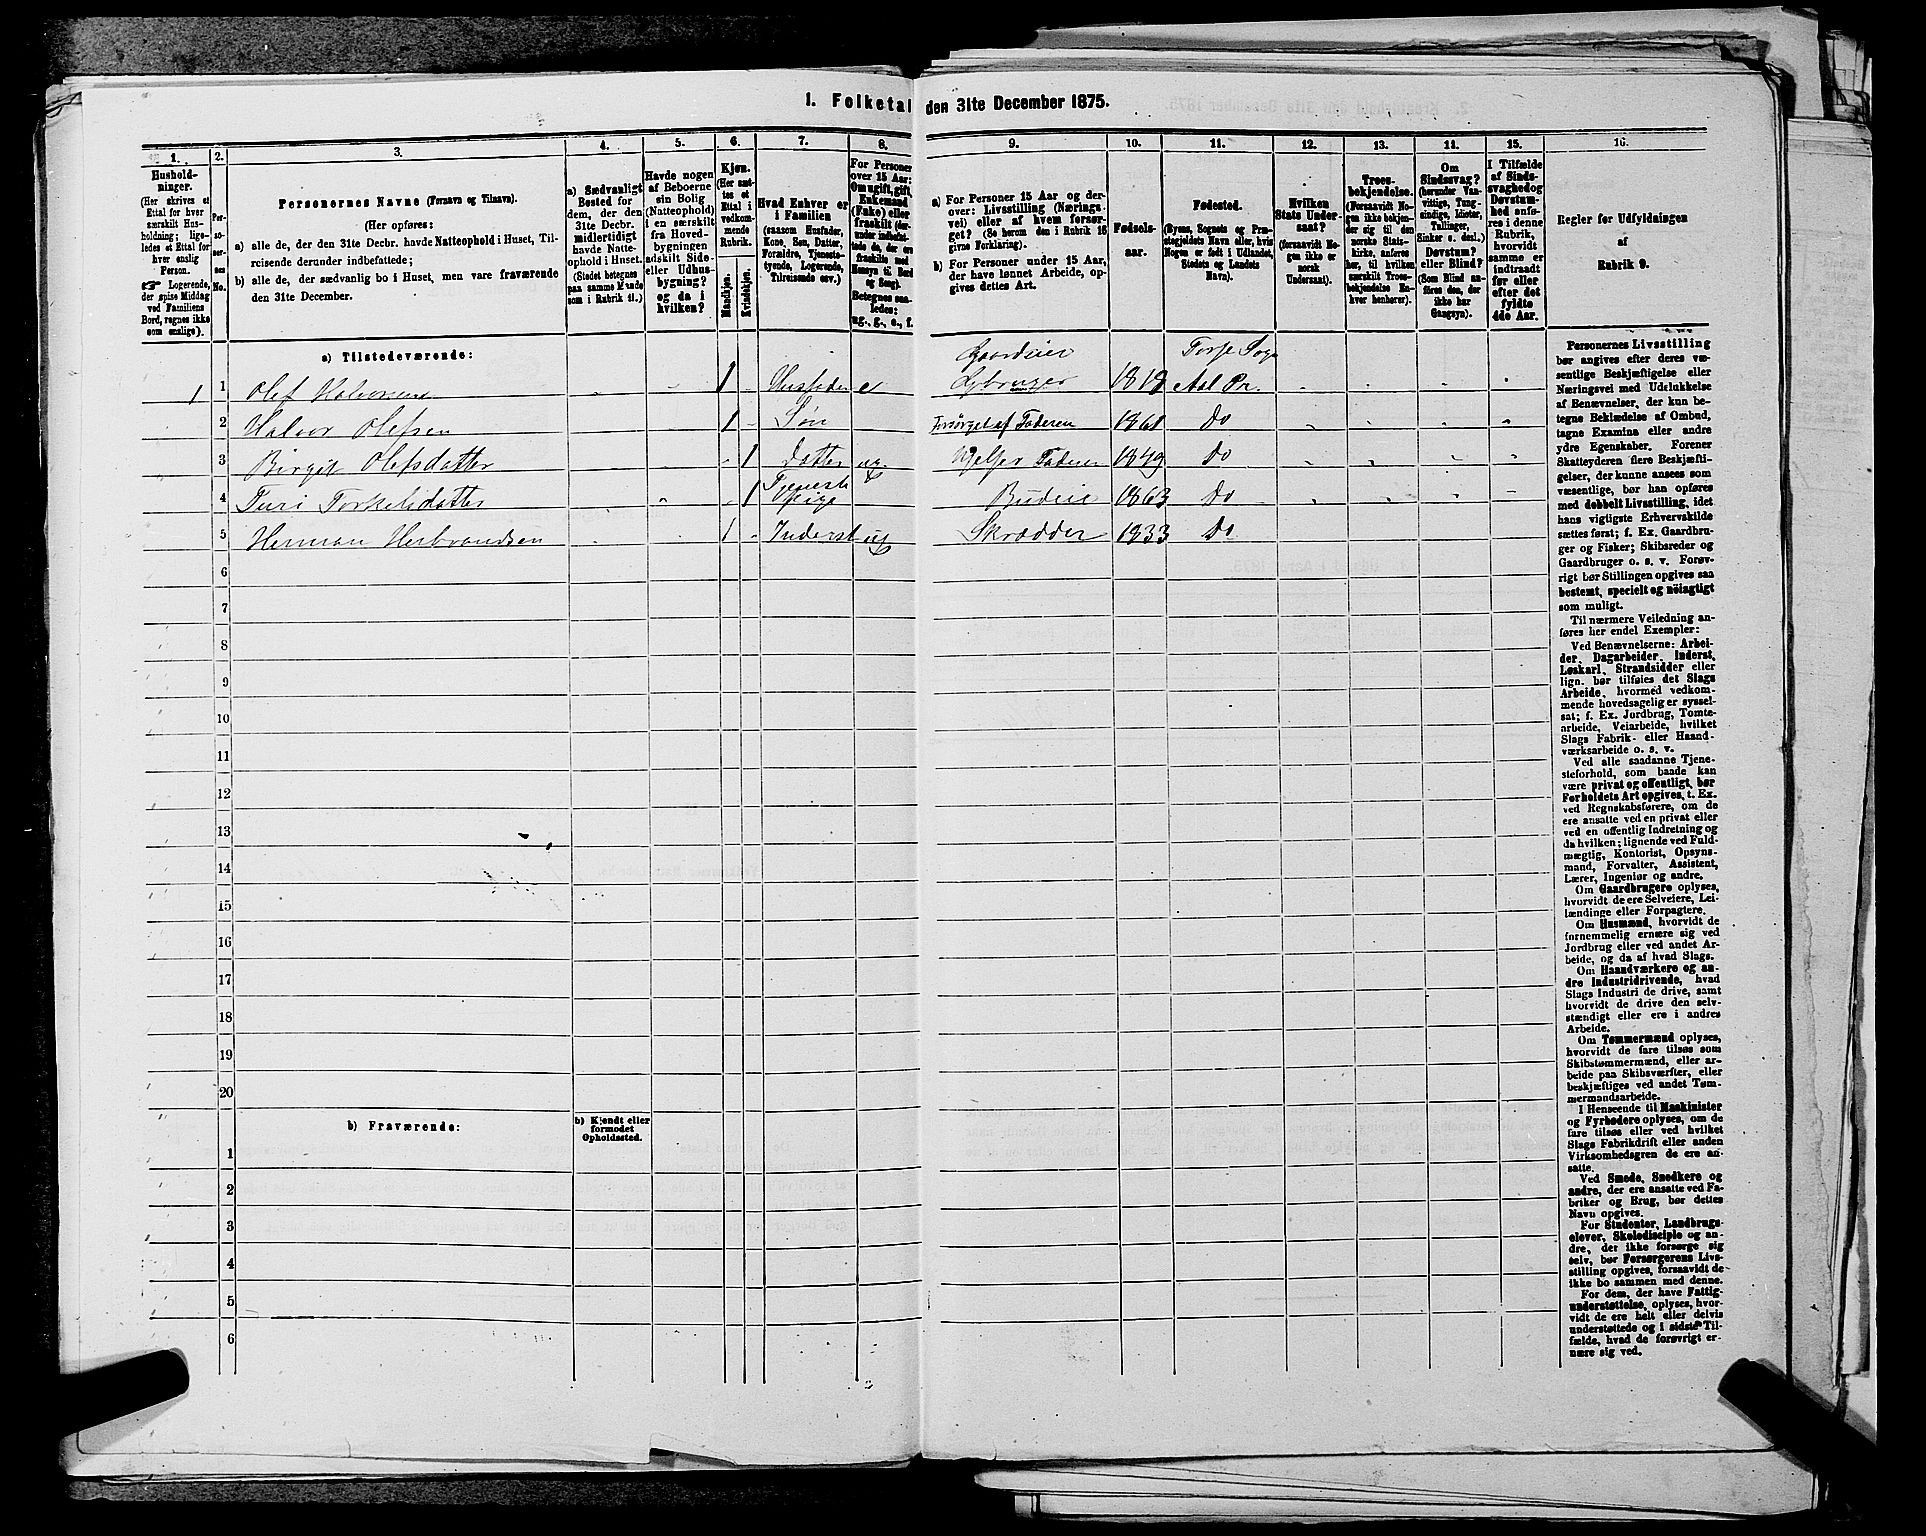 1. Folketal den 31te December 1875.
1.
Hushold-
ninger.
(Her skrives et
Ettal for hver
særskilt Hus-
holdning; lige-
ledes et Ettal for
hver enslig
Person.
Logerende,
der spise Middag
ved Familiens
Bord, regnes ikke
som enslige).
2.
Per-
so-
nernes
No.
3.
Personernes Navne (Fornavn og Tilnavn).
(Her opføres:
a) alle de, der den 31te Decbr. havde Natteophold i Huset, Til-
reisende derunder indbefattede;
b) alle de, der sædvanlig bo i Huset, men vare fraværende
den 31te December.
4.
a) Sædvanligt
Bosted for
dem, der den
31te Decbr.
midlertidigt
havde Natte-
ophold i Huset.
(Stedet betegnes
paa samme Maade
som i Rubrik 11.)
5.
Havde nogen
af Beboerne
sin Bolig
(Natteophold)
i en særskilt
fra Hoved-
bygningen
adskilt Side-
eller Udhus-
bygning?
og da i
hvilken?
6.
Kjøn.
(Her sæt-
tes et
Ettal i
vedkom-
mende
Rubrik.
Mandkjøn.
Kvindekjøn.
7.
Hvad Enhver er
i Familien
(saasom Husfader,
Kone, Søn, Datter,
Forældre, Tjeneste-
tyende, Logerende,
Tilreisende osv.)
8.
For Personer
over 15 Aar:
Om ugift, gift,
Enkemand
(Enke) eller
fraskilt (der-
under indbefat-
tede de, der ere
fraskilte med
Hensyn til Bord
og Seng).
Betegnes saa-
ledes:
ug., g., e., f.
9.
a) For Personer 15 Aar og der-
over: Livsstilling (Nærings-
vei) eller af hvem forsør-
get? (Se herom den i Rubrik 16
givne Forklaring).
b) For Personer under 15 Aar,
der have lønnet Arbeide, op-
gives dettes Art.
10.
Fødsels-
aar.
11.
Fødested.
(Byens, Sognets og Præ-
stegjeldets Navn eller, hvis
Nogen er født i Udlandet,
Stedets og Landets
Navn).
12.
Hvilken
Stats Under-
saat?
(forsaavidt No-
gen ikke er
norsk
Undersaat).
13.
Troes-
bekjendelse.
(Forsaavidt No-
gen ikke bekjen-
der sig til den
norske Stats-
kirke, anføres
her, til hvilken
særskilt Troes-
bekjendelse En-
hver henhører).
14.
Om
Sindssvag?
(herunder Van-
vittige, Tung-
sindige, Idioter,
Tullinger,
Sinker o. desl.)
Døvstum?
eller Blind?
(Som Blind an-
føres den, der
ikke har
Gangsyn).
15.
I Tilfælde
af Sinds-
svaghed og
Døvstum-
hed anfø-
res i denne
Rubrik,
hvorvidt
samme er
indtraadt
før eller
efter det
fyldte
4de Aar.
16.
Regler for Udfyldningen
af
Rubrik 9.
a) Tilstedeværende:
Gaardeier Torpe Sogn
1 1 Olef Halvorsen 1 Husfader e Lybruger 1818 Aal Pr.
2 Halvor Olefsen 1 Søn Forsørget af Faderen 1861 Do
3 Birgit Olefsdatter 1 Datter ug. Hjelper Faderen 1849 Do
4 Turi Torkelsdatter 1 Tjeneste Pige Budeie 1863 Do
5 Herman Herbrandsen 1 Inderst ug Skrædder 1833 Do
6
7
8
9
10
11
12
13
14
15
16
17
18
19
20
b) Fraværende:
b) Kjendt eller
formodet
Opholdssted.
1
2
3
4
5
6
Personernes Livsstilling
bør angives efter deres væ-
sentlige Beskjæftigelse eller
Næringsvei med Udelukkelse
af Benævnelser, der kun be-
tegne Beklædelse af Ombud,
tagne Examina eller andre
ydre Egenskaber. Forener
Skatteyderen flere Beskjæfti-
gelser, der kunne ansees som
væsentlige, bør han opføres
med dobbelt Livsstilling, idet
hans vigtigste Erhvervskilde
sættes først; f. Ex. Gaardbru-
ger og Fisker; Skibsreder og
Gaardbruger o. s. v. Forøv-
rigt bør Stillingen opgives saa
bestemt, specielt og nöiagtigt
som muligt.
Til nærmere Veiledning an-
føres her endel Exempler:
Ved Benævnelserne: Arbei-
der, Dagarbeider, Inderst,
Løskarl, Strandsidder eller
lign. bør tilføies det Slags
Arbeide, hvormed vedkom-
mende hovedsagelig er syssel-
sat; f. Ex. Jordbrug, Tomte-
arbeide, Veiarbeide, hvilket
Slags Fabrik- eller Haand-
værksarbeide o. s. v.
Ved alle saadanne Tjene-
steforhold, som baade kan
være privat og offentligt, bør
Forholdets Art opgives, t. Ex.
ved Regnskabsførere, om de
ere ansatte ved en privat eller
ved en offentlig Indretning og
da hvilken; lignende ved Fuld-
mægtig, Kontorist, Opsyns-
mand, Forvalter, Assistent,
Lærer, Ingeniør og andre.
Om Gaardbrugere oplyses,
hvorvidt de ere Selveiere, Lei-
lændinge eller Forpagtere.
Om Husmænd, hvorvidt de
fornemmelig ernære sig ved
Jordbrug eller ved andet Ar-
beide, og da af hvad Slags.
Om Haandværkere og an-
dre Industridrivende, hvad
Slags Industri de drive, samt
hvorvidt de drive den selv-
stændigt eller ere i andres
Arbeide.
Om Tømmermænd oplyses,
hvorvidt de fare tilsøs som
Skibstømmermænd, eller ar-
beide paa Skibsværfter, eller
beskjæftiges ved andet Tøm-
mermandsarbeide.
I Henseende til Maskinister
og Fyrbødere oplyses, om de
fare tilsøs eller ved hvilket
Slags Fabrikdrift eller anden
Virksomhedsgren de ere an-
satte.
Ved Smede, Snedkere og
andre, der ere ansatte ved Fa-
briker og Brug, bør dettes
Navn opgives.
For Studenter, Landbrugs-
elever, Skoledisciple og an-
dre, der ikke forsørge sig
selv, bør Forsørgerens Livs-
stilling opgives, forsaavidt de
ikke bo sammen med denne.
For dem, der have Fattig-
understøttelse, oplyses, hvor-
vidt de ere helt eller delvis
understøttede og i sidste Til-
fælde, hvad de forøvrigt er-
nære sig ved.